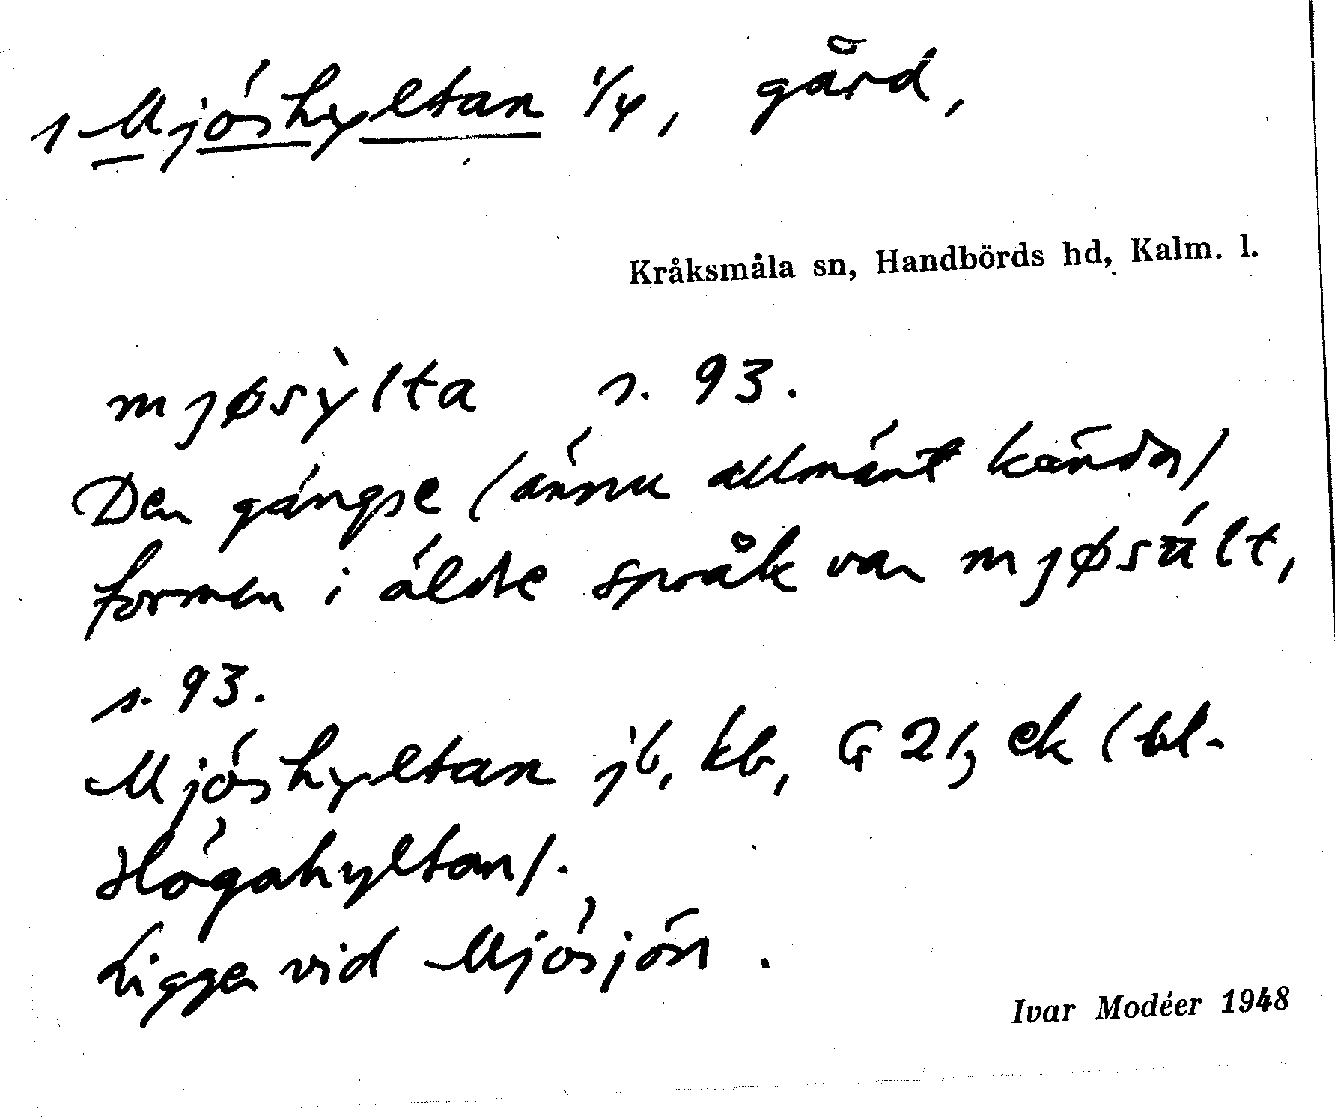 1 Mjöshyltan 1/4, gård,
Kråksmåla sn, Handbörds hd, Kalm. l.
mjøsỳlta s. 93.
Den gängse (ännu allmänt kända)
formen i äldre språk var mjøsúlt,
s. 93.
Mjöshyltan jb, kb, G 21, ek (bl.
Högahyltan).
Ligger vid Mjösjön.
Ivar Modéer 1948